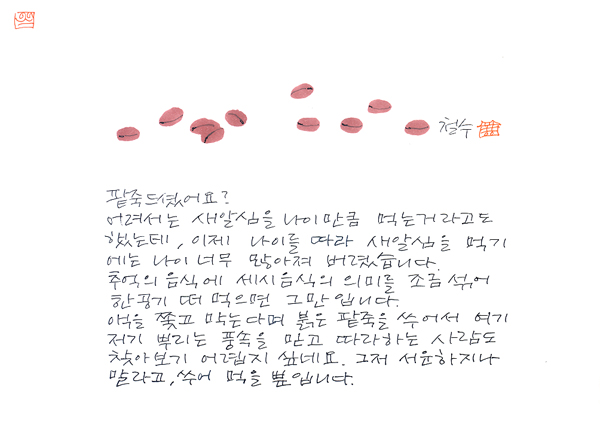 철수
팥죽 드셨어요?
어려서는 새알심을 나이만큼 먹는거라고도
했는데, 이제 나이를 따라 새알심을 먹기
에는 나이 너무 많아져 버렸습니다.
추억의 음식에 세시음식의 의미를 조금 섞어
한공기 떠 먹으면 그만입니다.
액을 쫓고 막는다며 붉은 팥죽을 쑤어서 여기
저기 뿌리는 풍속을 믿고 따라하는 사람도
찾아보기 어렵지 싶네요. 그저 서운하지나
말라고, 쑤어 먹을 뿐입니다.